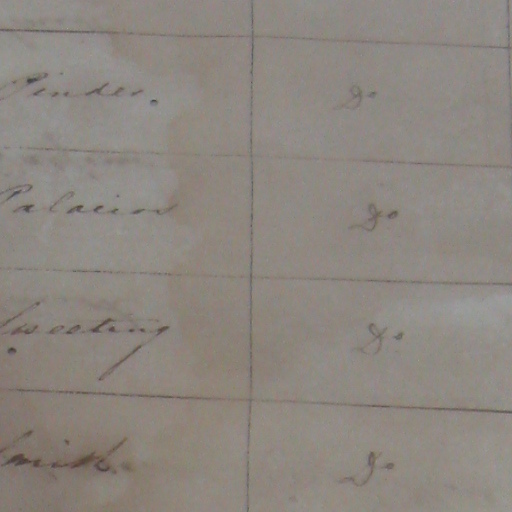 Pinder. Do
Palacios Do
Sweeting Do
Smith. Do